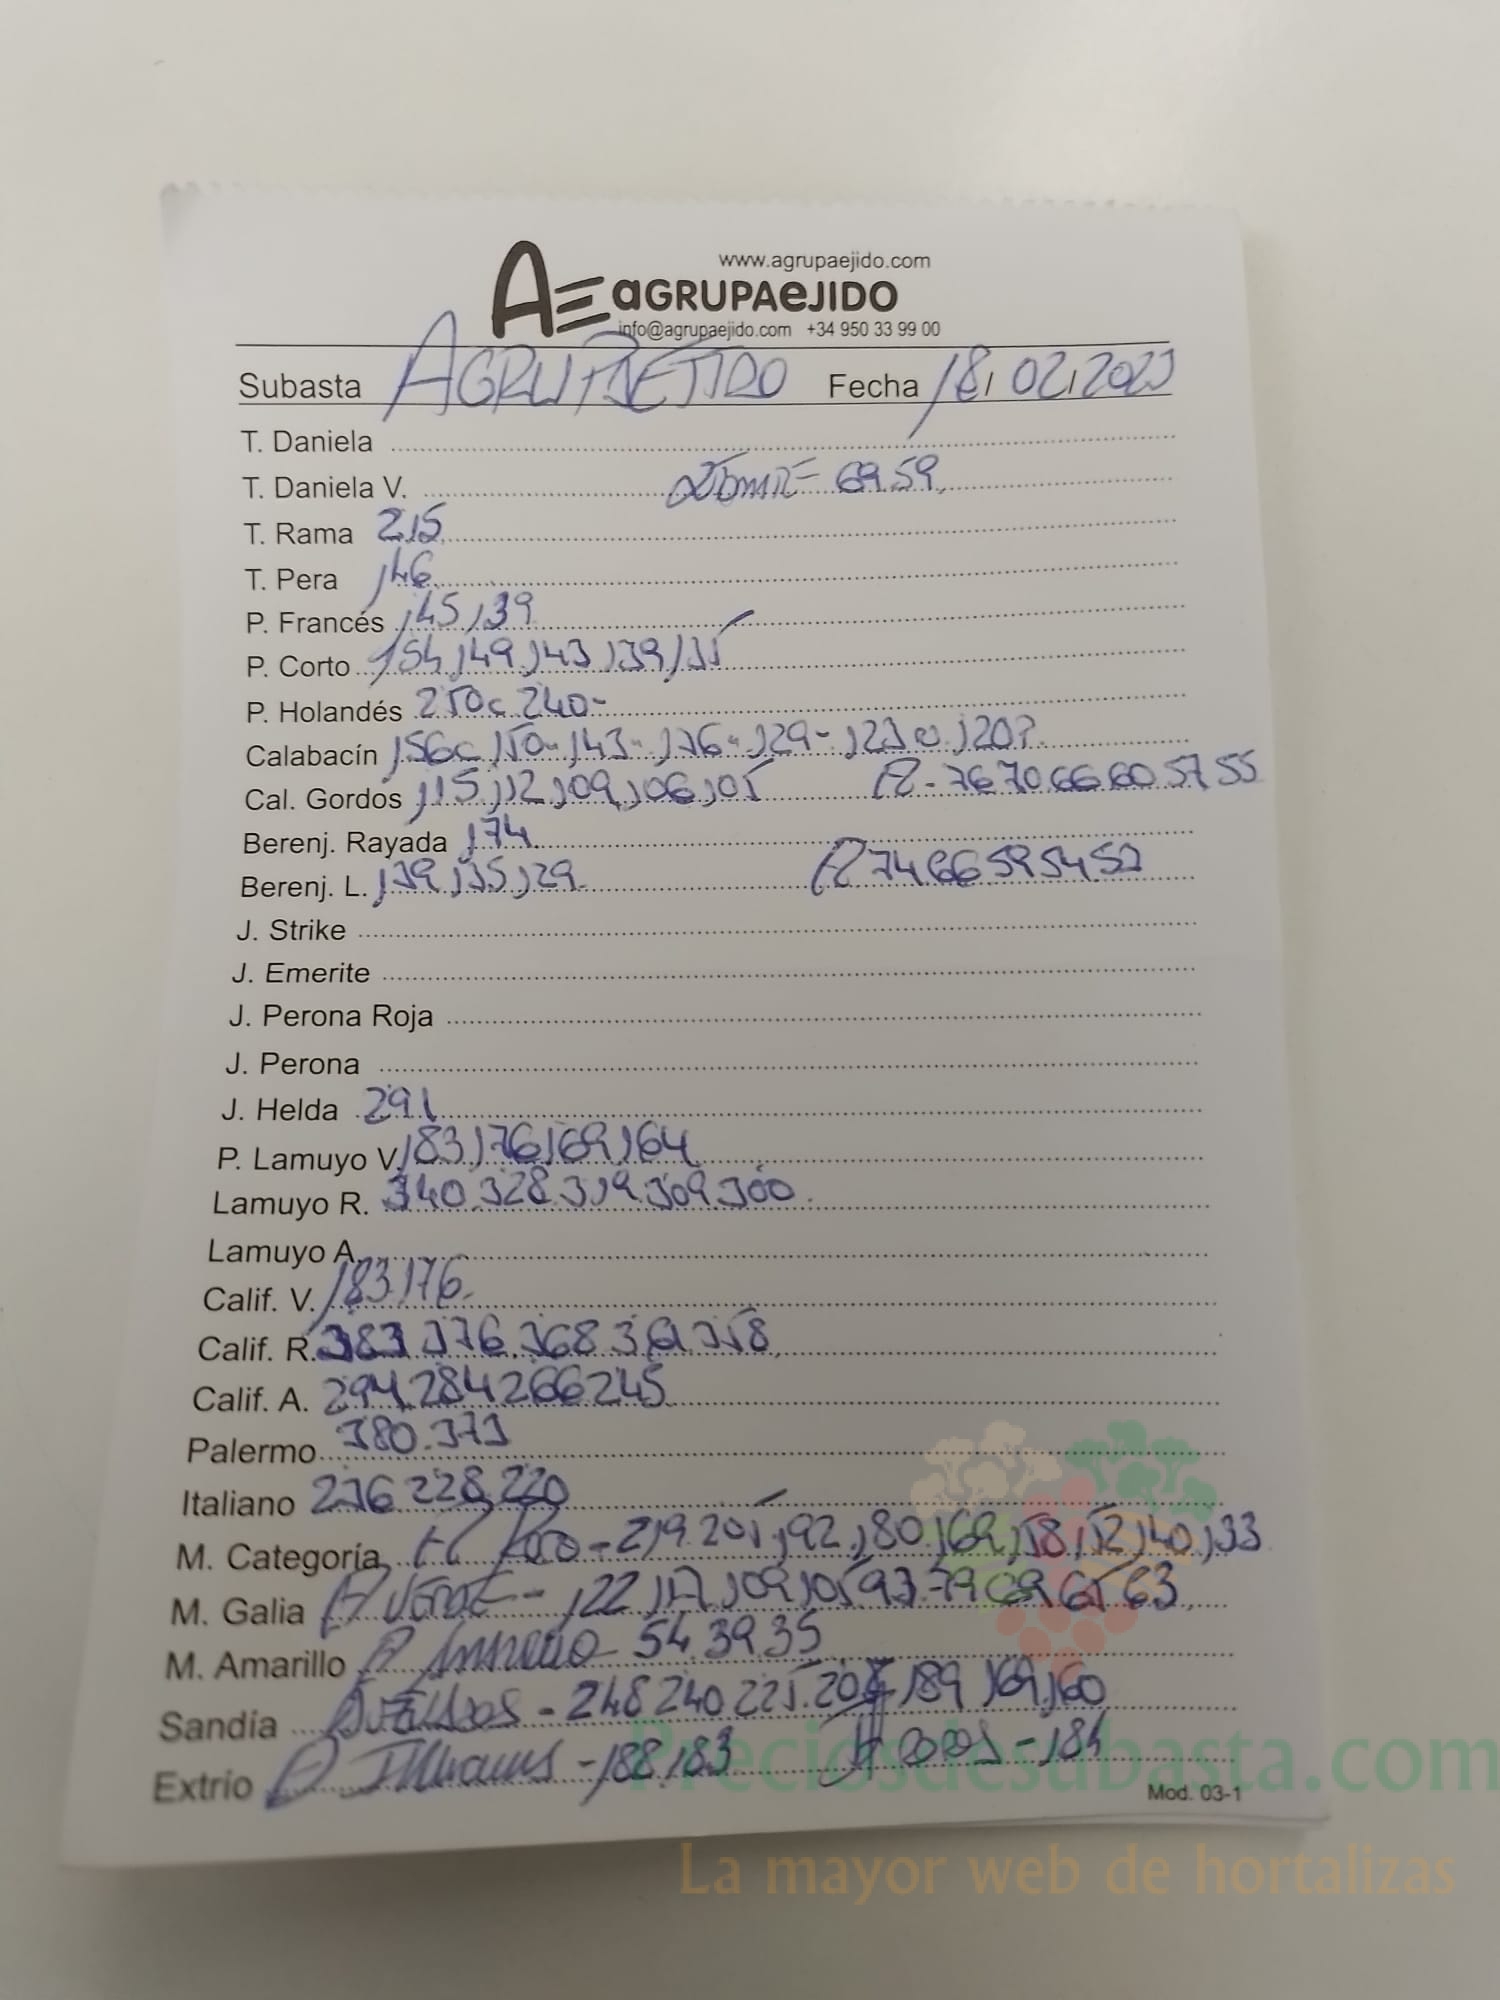 www.agrupaejido.com
AE aGRUPAeJIDO
info@agrupaejido.com +34 950 33 99 00
Subasta AGRUPAEJIDO Fecha 18/02/2023
T. Daniela
T. Daniela V. 69.59
T. Rama 215
T. Pera 146
P. Francés 145,139
P. Corto 154,149,143,139,135
P. Holandés 250c 240-
Calabacín 156c 150- 143- 136- 129- 123 120
Cal. Gordos 115,112,109,106,105 P- 76 70 66 60 57 55
Berenj. Rayada 174
Berenj. L. 139,135,129 P 74 66 59 54 52
J. Strike
J. Emerite
J. Perona Roja
J. Perona
J. Helda 291
P. Lamuyo V. 183,176,169,164
Lamuyo R. 340.328.319.309.300
Lamuyo A.
Calif. V. 183.176
Calif. R. 383 376 368 361 358
Calif. A. 294.284 266 245
Palermo 380.373
Italiano 236 228 220
M. Categoría P Rojo - 219.205,192,180,169,158,152,140,133
M. Galia P Verde - 122,117,109,105 93.79 69 65 63
M. Amarillo P Amarillo - 54.39.35
Sandía 248 240 225 205 189 169,160
Extrio P Italianos - 188,183 184
Mod. 03-1
Preciosdesubasta.com
La mayor web de hortalizas